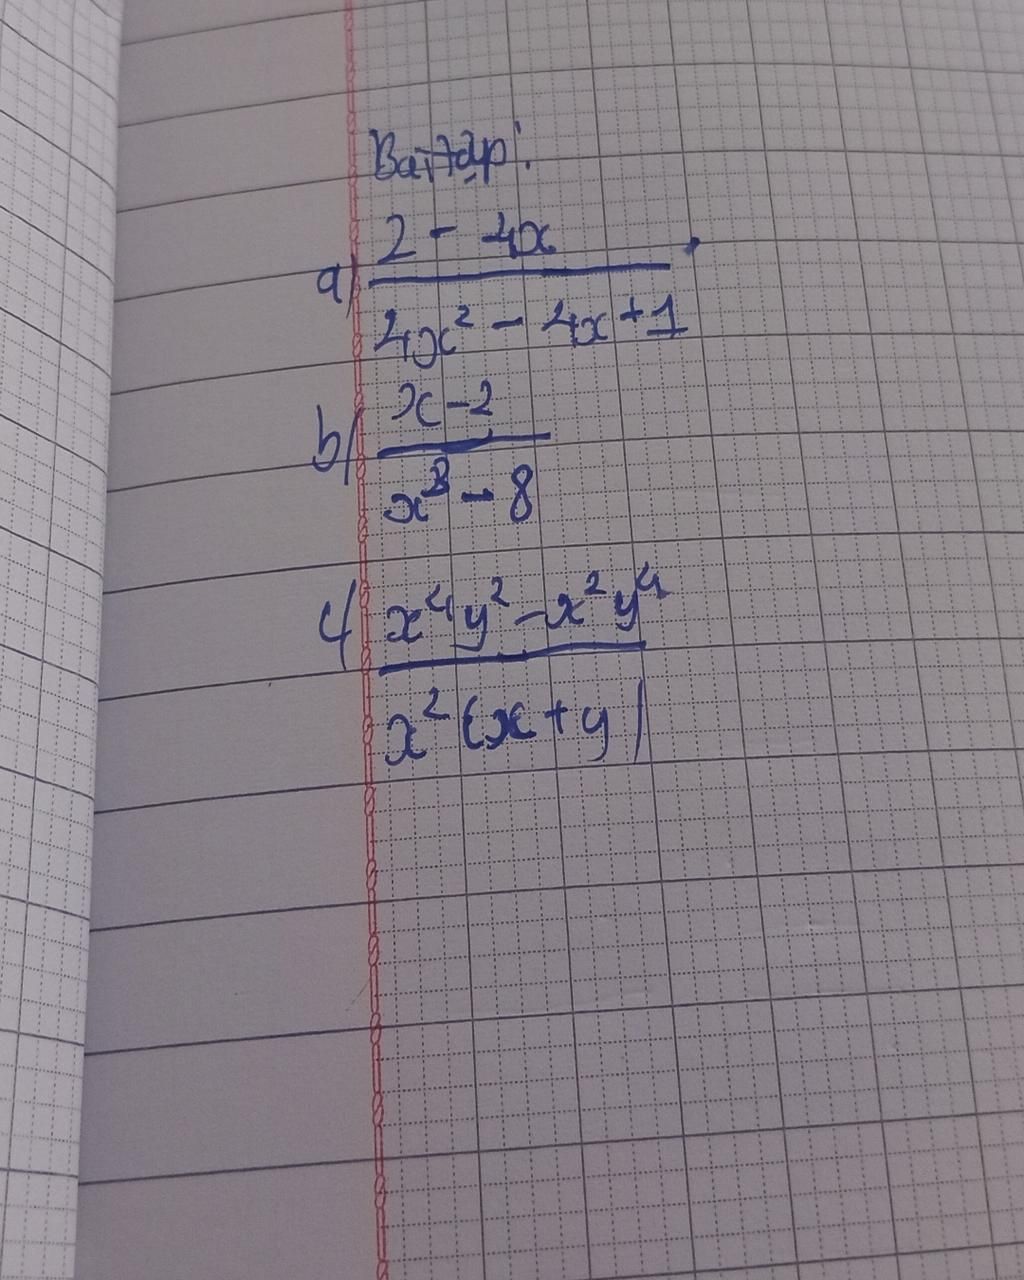 Bài tập:
a) (2 - 4x) / (4x² - 4x + 1)
b) (x - 2) / (x³ - 8)
c) (x⁴y² - x²y⁴) / (x² (x + y))